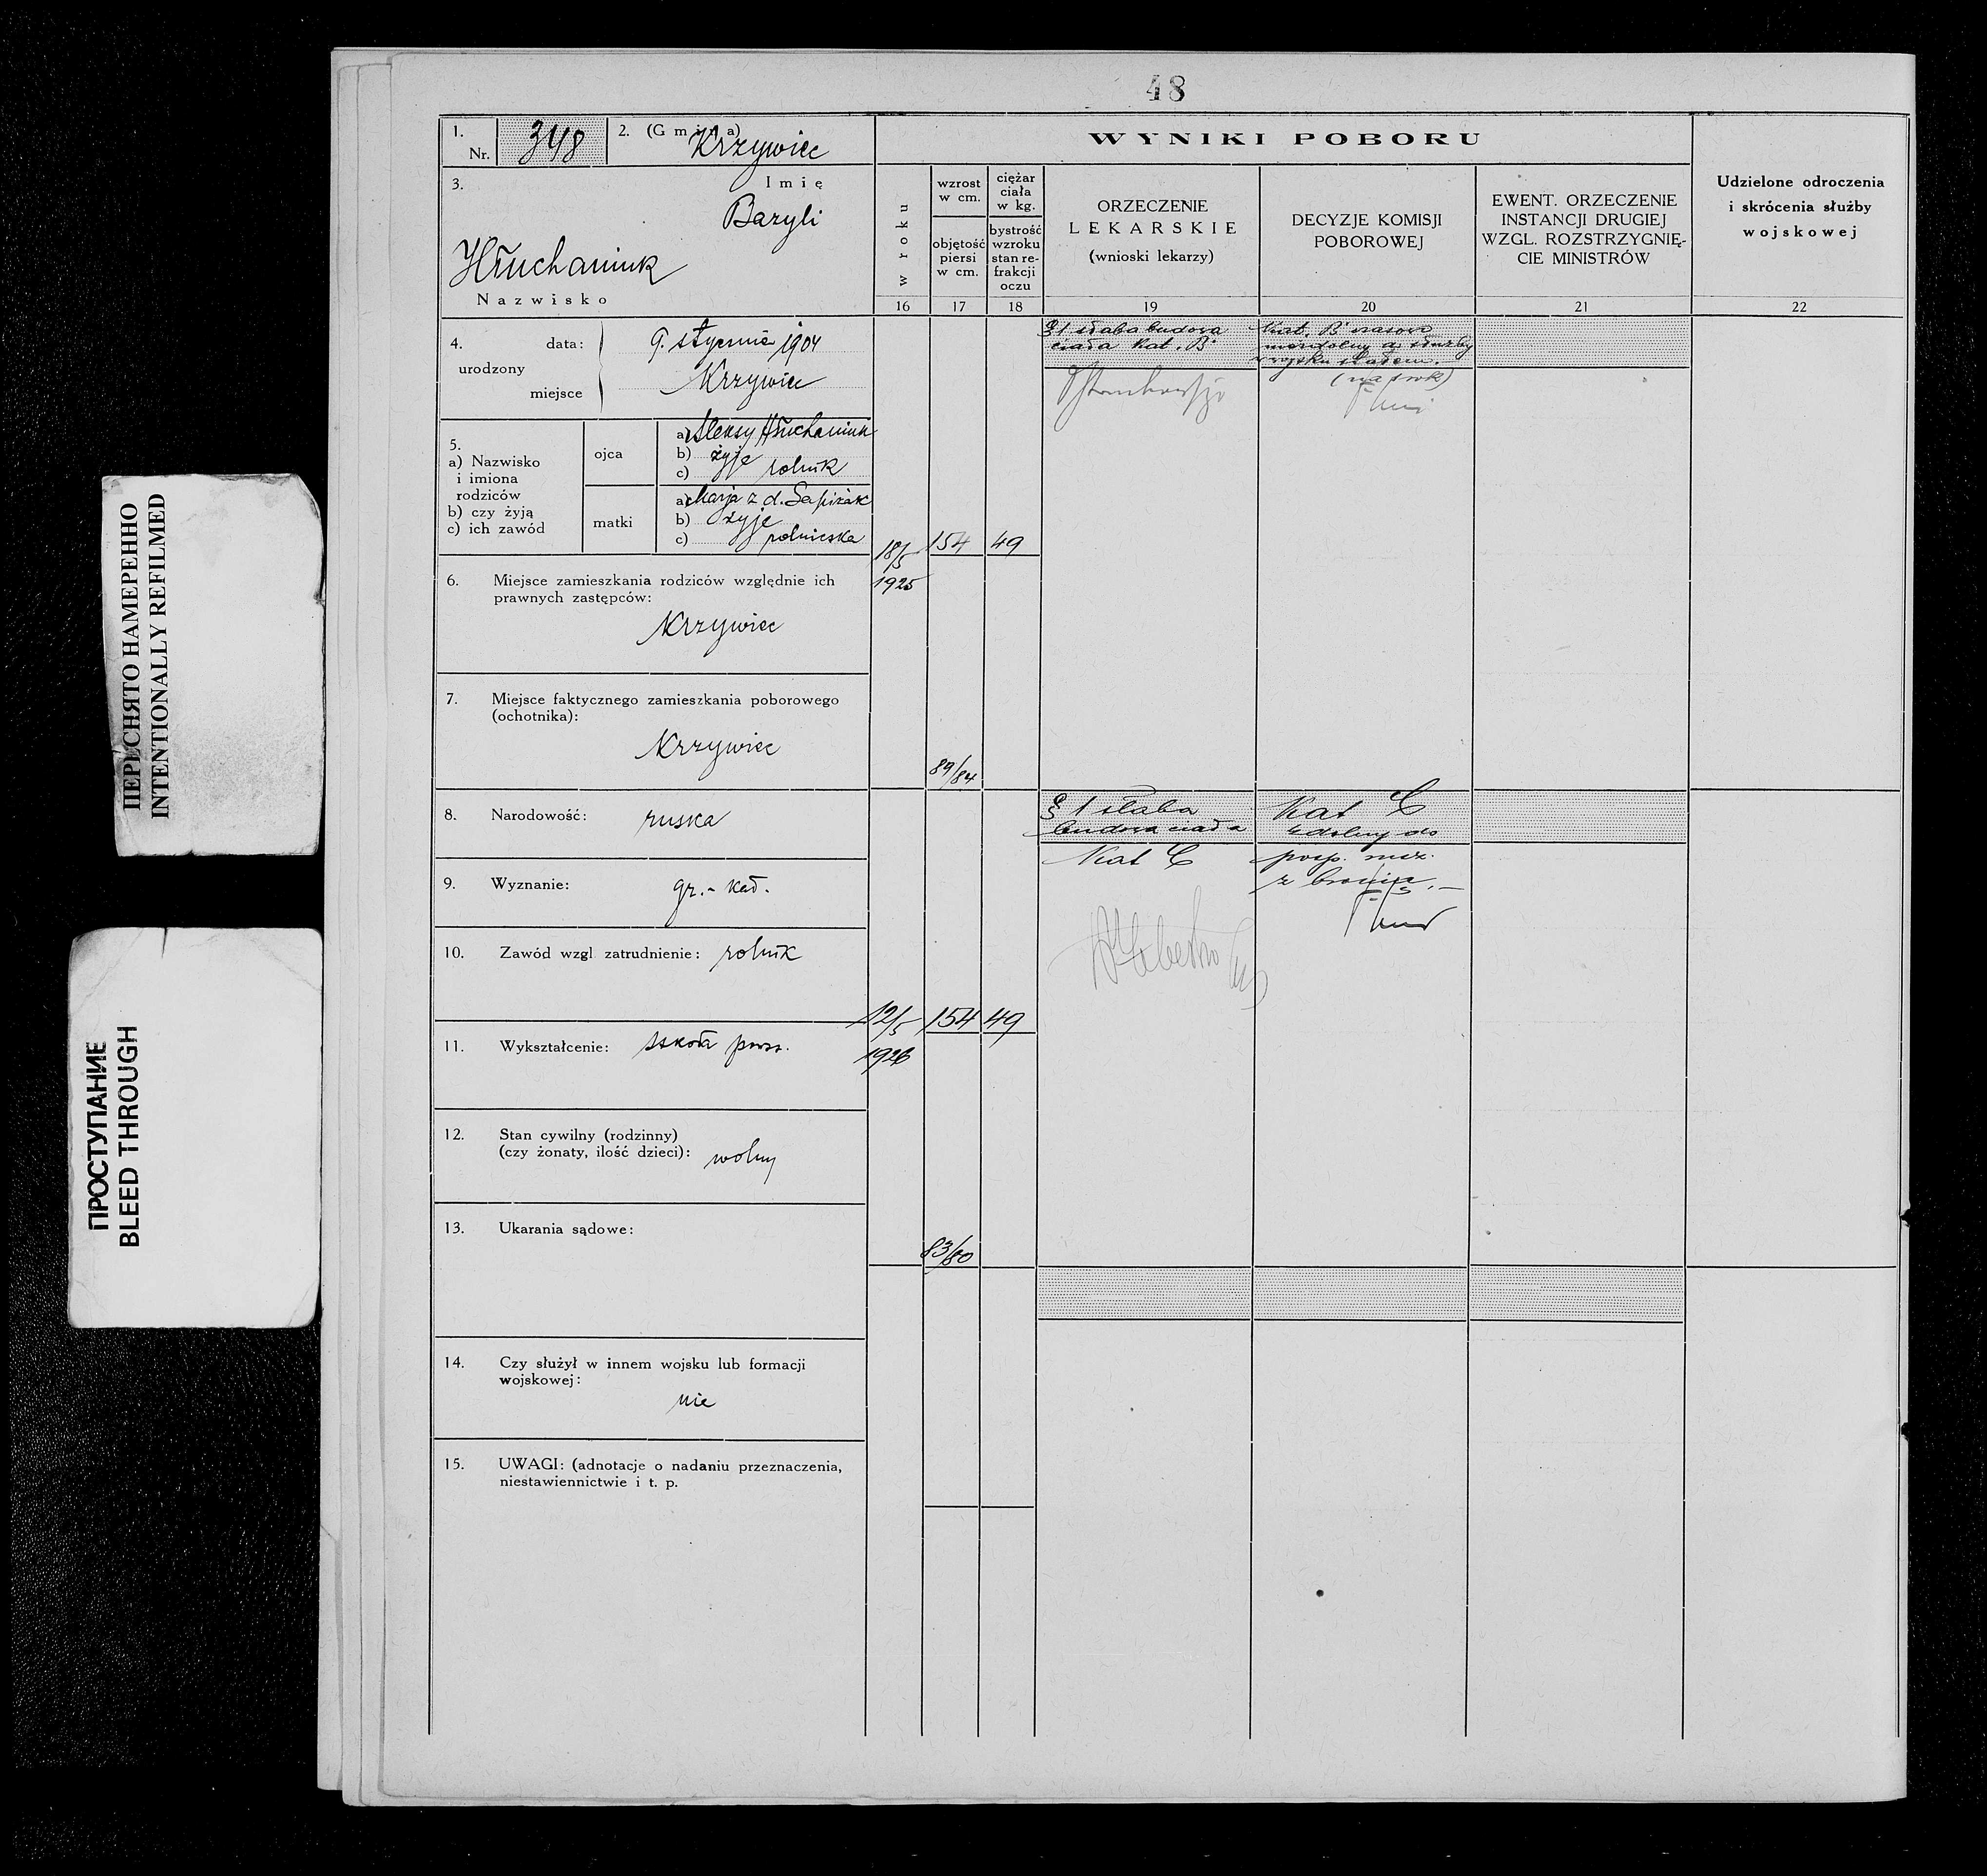 48
1. Nr. 348
2. (Gmina) Krzywiec
3. Imię
Bazyli
Hłuchaniuk
Nazwisko
4. urodzony
data: 9. stycznia 1904
miejsce Krzywiec
5.
a) Nazwisko
i imiona
rodziców
b) czy żyją
c) ich zawód
ojca
a) Aleksy Hłuchaniuk
b) żyje
c) rolnik
matki
a) Marja z d.
b) żyje
c) rolniczka
6. Miejsce zamieszkania rodziców względnie ich
prawnych zastępców:
Krzywiec
7. Miejsce faktycznego zamieszkania poborowego
(ochotnika):
Krzywiec
8. Narodowość: ruska
9. Wyznanie: gr.-kat.
10. Zawód wzgl. zatrudnienie: rolnik
11. Wykształcenie: szkoła
12. Stan cywilny (rodzinny)
(czy żonaty, ilość dzieci): wolny
13. Ukarania sądowe:
14. Czy służył w innem wojsku lub formacji
wojskowej:
nie
15. UWAGI: (adnotacje o nadaniu przeznaczenia,
niestawiennictwie i t. p.
WYNIKI POBORU
w roku
16
wzrost
w cm.
objętość
piersi
w cm.
17
ciężar
ciała
w kg.
bystrość
wzroku
stan re-
frakcji
oczu
18
ORZECZENIE
LEKARSKIE
(wnioski lekarzy)
19
DECYZJE KOMISJI
POBOROWEJ
20
EWENT. ORZECZENIE
INSTANCJI DRUGIEJ
WZGL. ROZSTRZYGNIĘ-
CIE MINISTRÓW
21
Udzielone odroczenia
i skrócenia służby
wojskowej
22
18/5
1925
154
49
89/84
§ 1 słaba budowa
ciała Kat. B
Kat. B czasowo
niezdolny do służby
w wojsku stałem.
(na rok)
12/5
1926
154
49
83/80
§ 1 słaba
budowa ciała
Kat C
Kat C
zdolny do
posp. rusz.
z bronią.
ПЕРЕСНЯТО НАМЕРЕННО
INTENTIONALLY REFILMED
ПРОСТУПАНИЕ
BLEED THROUGH